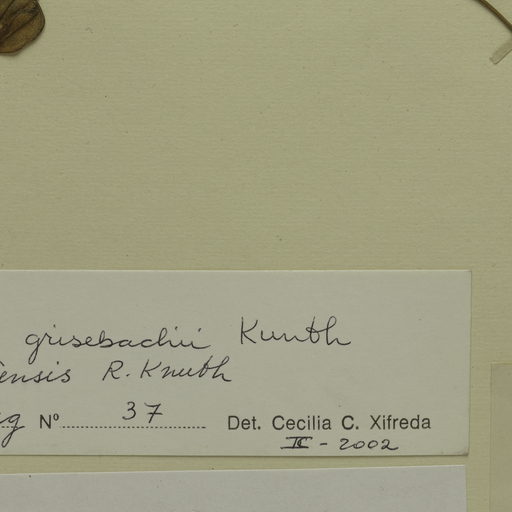 grisebachii Kunth
ensis R. Knuth
g Nº 37 Det. Cecilia C. Xifreda
II - 2002